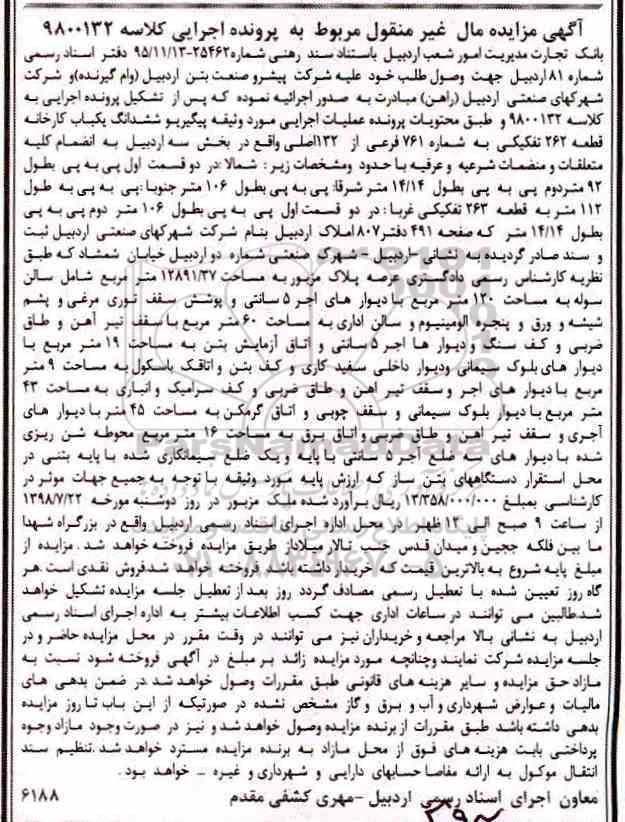 آگهی مزایده مال غیر منقول مربوط به پرونده اجرایی کلاسه ۹۸۰۰۱۳۲
بانک تجارت مدیریت امور شعب اردبیل باستناد سند رهنی شماره ۲۵۴۶۲-۹۵/۱۱/۱۳ دفتر اسناد رسمی
شماره ۸۱ اردبیل جهت وصول طلب خود علیه شرکت پیشرو صنعت بتن اردبیل (وام گیرنده)و شرکت
شهرکهای صنعتی اردبیل (راهن) مبادرت به صدور اجرائیه نموده که پس از تشکیل پرونده اجرایی به
کلاسه ۹۸۰۰۱۳۲ و طبق محتویات پرونده عملیات اجرایی مورد وثیقه پیگیریو ششدانگ یکباب کارخانه
قطعه ۲۶۲ تفکیکی به شماره ۷۶۱ فرعی از ۱۳۲اصلی واقع در بخش سه اردبیل به انضمام کلیه
متعلقات و منضمات شرعیه و عرفیه با حدود ومشخصات زیر : شمالا: در دو قسمت اول پی به پی بطول
۹۲ متردوم پی به پی بطول ۱۴/۱۴ متر شرقا: پی به پی بطول ۱۰۶ متر جنوبا :پی به پی به طول
۱۱۲ متر به قطعه ۲۶۳ تفکیکی غربا : در دو قسمت اول پی به پی بطول ۱۰۶ متر دوم پی به پی
بطول ۱۴/۱۴ متر که صفحه ۴۹۱ دفتر۸۰۷ املاک اردبیل بنام شرکت شهرکهای صنعتی اردبیل ثبت
و سند صادر گردیده به نشانی -اردبیل - شهرک صنعتی شماره دو اردبیل خیابان شمشاد که طبق
نظریه کارشناس رسمی دادگستری عرصه پلاک مزبور به مساحت ۱۲۸۹۱/۳۷ متر مربع شامل سالن
سوله به مساحت ۱۲۰ متر مربع با دیوار های اجر ۵ سانتی و پوشش سقف توری مرغی و پشم
شیشه و ورق و پنجره الومینیوم و سالن اداری به مساحت ۶۰ متر مربع با سقف تیر آهن و طاق
ضربی و کف سنگ و دیوار ها اجر ۵ سانتی و اتاق آزمایش بتن به مساحت ۱۹ متر مربع با
دیوار های بلوک سیمانی ودیوار داخلی سفید کاری و کف بتن و اتاقک باسکول به مساحت ۹ متر
مربع با دیوار های اجر و سقف تیر اهن و طاق ضربی و کف سرامیک و انباری به مساحت ۴۳
متر مربع با دیوار بلوک سیمانی و سقف چوبی و اتاق گرمکن به مساحت ۴۵ متر با دیوار های
آجری و سقف تیر اهن و طاق ضربی و اتاق برق به مساحت ۱۶ متر مربع محوطه شن ریزی
شده با دیوار های سه ضلع آجر ۵ سانتی با پایه و یک ضلع سیمانکاری شده با پایه بتنی در
محل استقرار دستگاههای بتن ساز که ارزش پایه مورد وثیقه با توجه به جمیع جهات موثر در
کارشناسی بمبلغ ۱۳/۳۵۸/۰۰۰/۰۰۰ ریال برآورد شده ملک مزبور در روز دوشنبه مورخه ۱۳۹۸/۷/۲۲
از ساعت ۹ صبح الی ۱۲ ظهر در محل اداره اجرای اسناد رسمی اردبیل واقع در بزرگراه شهدا
ما بین فلکه ججین و میدان قدس جنب تالار میلاداز طریق مزایده فروخته خواهد شد . مزایده از
مبلغ پایه شروع به بالاترین قیمت که خریدار داشته باشد فروخته خواهد شدفروش نقدی است .هر
گاه روز تعیین شده با تعطیل رسمی مصادف گردد روز بعد از تعطیل جلسه مزایده تشکیل خواهد
شد.طالبین می توانند در ساعات اداری جهت کسب اطلاعات بیشتر به اداره اجرای اسناد رسمی
اردبیل به نشانی بالا مراجعه و خریداران نیز می توانند در وقت مقرر در محل مزایده حاضر و در
جلسه مزایده شرکت نمایند وچنانچه مورد مزایده زائد بر مبلغ در آگهی فروخته شود نسبت به
مازاد حق مزایده و سایر هزینه های قانونی طبق مقررات وصول خواهد شد در ضمن بدهی های
مالیات و عوارض شهرداری و آب و برق و گاز مشخص نشده در صورتیکه از این باب تا روز مزایده
بدهی داشته باشد طبق مقررات از برنده مزایده وصول خواهد شد و نیز در صورت وجود مازاد وجوه
پرداختی بابت هزینه های فوق از محل مازاد به برنده مزایده مسترد خواهد شد .تنظیم سند
انتقال موکول به ارائه مفاصا حسابهای دارایی و شهرداری و غیره – خواهد بود .
معاون اجرای اسناد رسمی اردبیل -مهری کشفی مقدم
۶۱۸۸